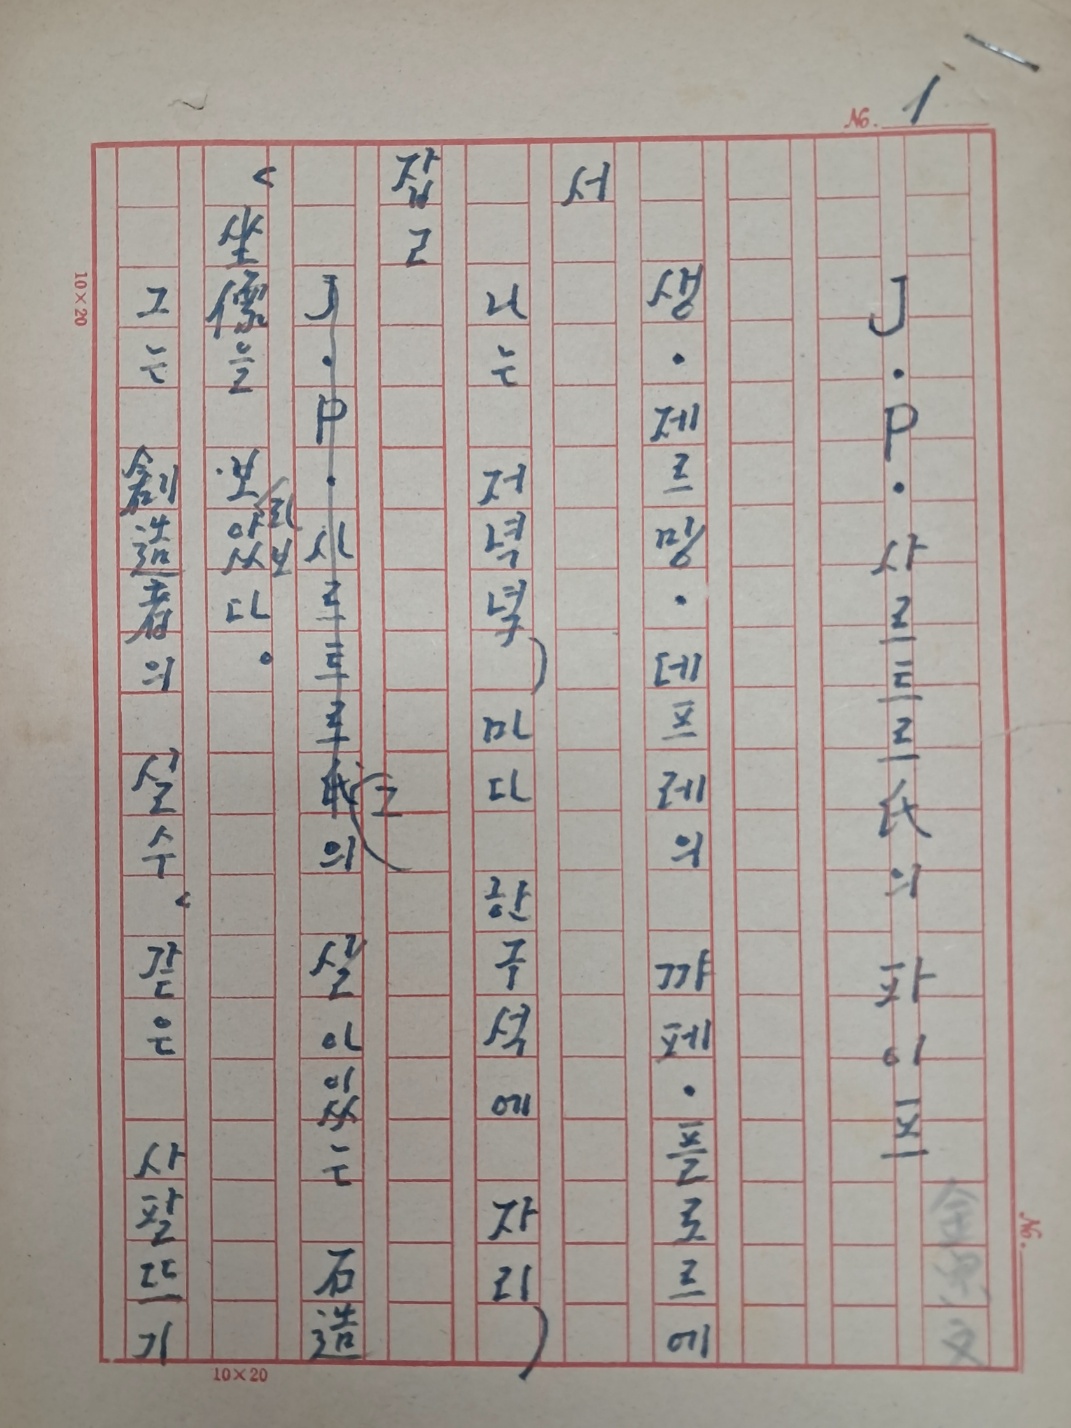 No. 1
J·P·사르트르氏의 파이프
생·제르밍·데프레의 꺄페·플로르에
서
나는 저녁녘 마다 한구석에 자리
잡고
J·P·사르트르氏의 살아있는 石造
그
坐像을 보았다。
라보
그는 創造者의 실수 같은 사팔뜨기
10×20
10×20
No.